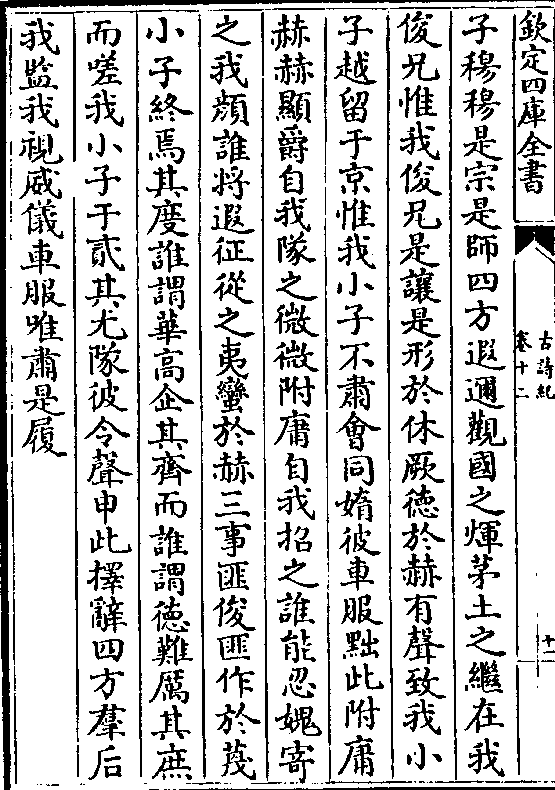 欽定四庫全書
古詩紀
卷十二
十一
子穆穆是宗是師四方遐邇觀國之煇茅土之繼在我
俊兄惟我俊兄是讓是形於休厥德於赫有聲致我小
子越留于京惟我小子不肅會同媠彼車服黜此附庸
赫赫顯爵自我隊之微微附庸自我招之誰能忍媿寄
之我顏誰將遐征從之夷蠻於赫三事匪俊匪作於蔑
小子終焉其度誰謂華高企其齊而誰謂德難厲其庶
而嗟我小子于貳其尤隊彼令聲申此擇辭四方羣后
我監我視威儀車服唯肅是履